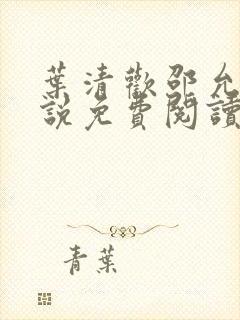 葉清歡邵允
說免費閱讀
青葉